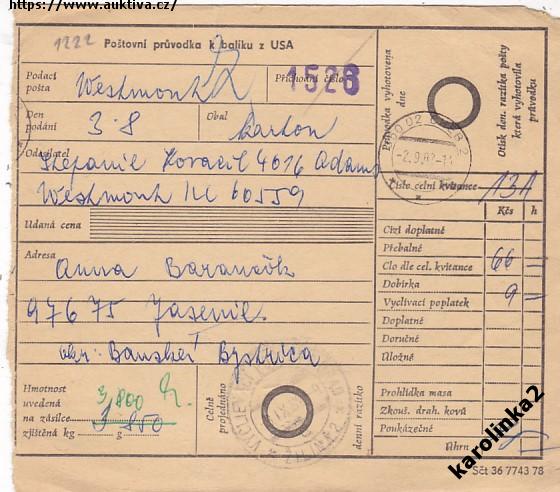 https://www.auktiva.cz/
1222
Poštovní průvodka k balíku z USA
Podací pošta Westmont
Příchodní číslo 1526
Den podání 3.8 Obal karton
Odesílatel Stepanie Kovacik 4016 Adams
Westmont Ill 60559
Udaná cena
Adresa
Anna Barančok
976 75 Jasenie
okr: Banská Bystrica
Hmotnost uvedená na zásilce 3,800
zjištěná kg 3 g 850
Celně projednáno
denní razítko
ŽILINA 2
Průvodka vyhotovena dne
Otisk den. razítka pošty která vyhotovila průvodku
-2.9.82-11
Číslo celní kvitance 13A
Kčs h
Cizí doplatné
Přebalné
Clo dle cel. kvitance 66 —
Dobírka
Vyclívací poplatek 9 —
Doplatné
Doručné
Úložné
Prohlídka masa
Zkouš. drah. kovů
Poukázečné
Úhrn
Sčt 36 7743 78
karolinka2